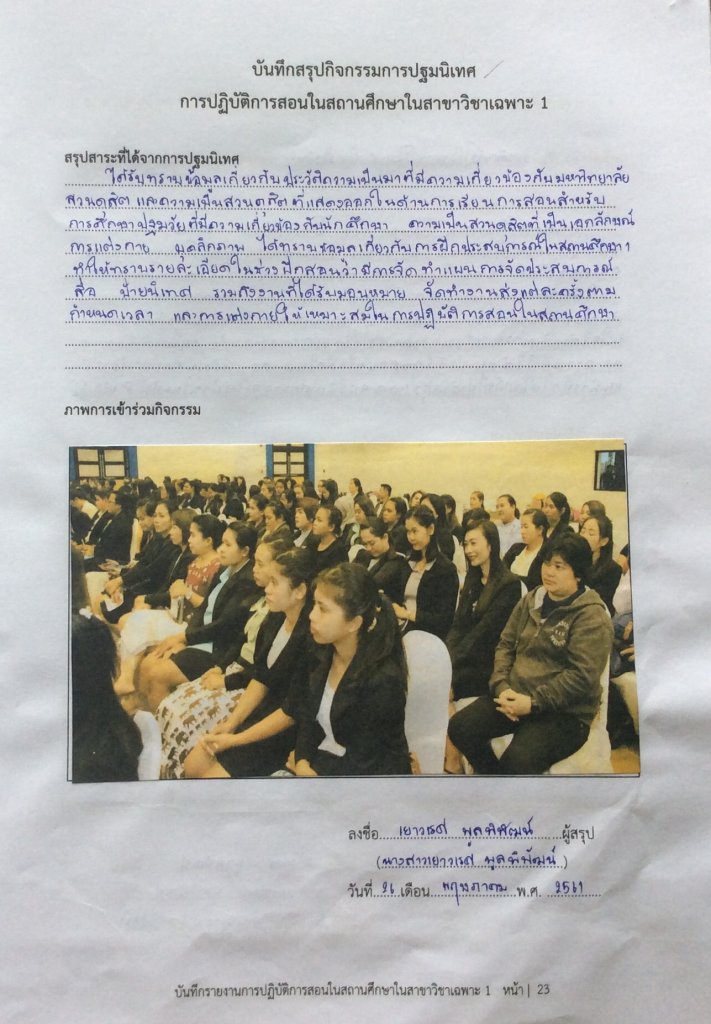 บันทึกสรุปกิจกรรมการปฐมนิเทศ
การปฏิบัติการสอนในสถานศึกษาในสาขาวิชาเฉพาะ 1
สรุปสาระที่ได้จากการปฐมนิเทศ
ได้รับทราบข้อมูลเกี่ยวกับประวัติความเป็นมาที่มีความเกี่ยวข้องกับมหาวิทยาลัย
สวนดุสิต และความเป็นสวนดุสิตที่แสดงออกในด้านการเรียนการสอนสำหรับ
การศึกษาปฐมวัยที่มีความเกี่ยวข้องกับนักศึกษา ความเป็นสวนดุสิตที่เป็นเอกลักษณ์
การแต่งกาย บุคลิกภาพ ได้ทราบข้อมูลเกี่ยวกับการฝึกประสบการณ์ในสถานศึกษา 1
ทำให้ทราบรายละเอียดในช่วงฝึกสอนว่ามีการจัดทำแผนการจัดประสบการณ์
สื่อ ป้ายนิเทศ รวมถึงงานที่ได้รับมอบหมาย จัดทำงานส่งแต่ละครั้งตาม
กำหนดเวลา และการแต่งกายให้เหมาะสมในการปฏิบัติการสอนในสถานศึกษา
ภาพการเข้าร่วมกิจกรรม
ลงชื่อ เยาวเรศ พูลพิพัฒน์ ผู้สรุป
(นางสาวเยาวเรศ พูลพิพัฒน์)
วันที่ 26 เดือน พฤษภาคม พ.ศ. 2561
บันทึกรายงานการปฏิบัติการสอนในสถานศึกษาในสาขาวิชาเฉพาะ 1 หน้า | 23